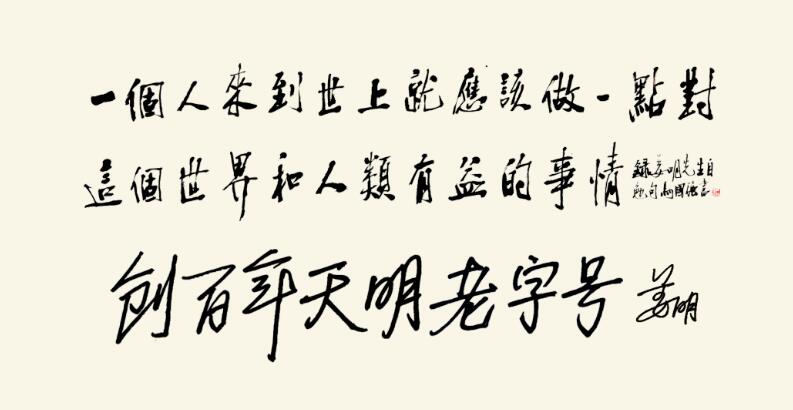 一個人來到世上就應該做一點對
這個世界和人類有益的事情
錄姜明先生自
句 國強書
创百年天明老字号
姜明